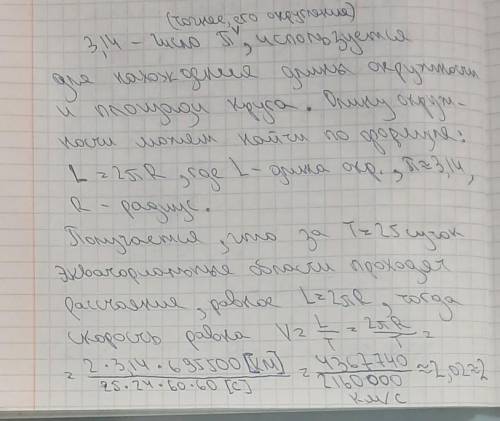 (точнее, его округление)
3,14 – число π, используется
для нахождения длины окружности
и площади круга. Длину окруж-
ности можем найти по формуле:
L = 2πR, где L – длина окр., π≈3,14,
R – радиус.
Получается, что за T=25 суток
экваториальные области проходят
расстояние, равное L=2πR, тогда
скорость равна V= L/T = 2πR/T =
= 2·3,14·695500 [км] / 25·24·60·60 [с] = 4367740 / 2160000 ≈ 2,02≈2
км/с